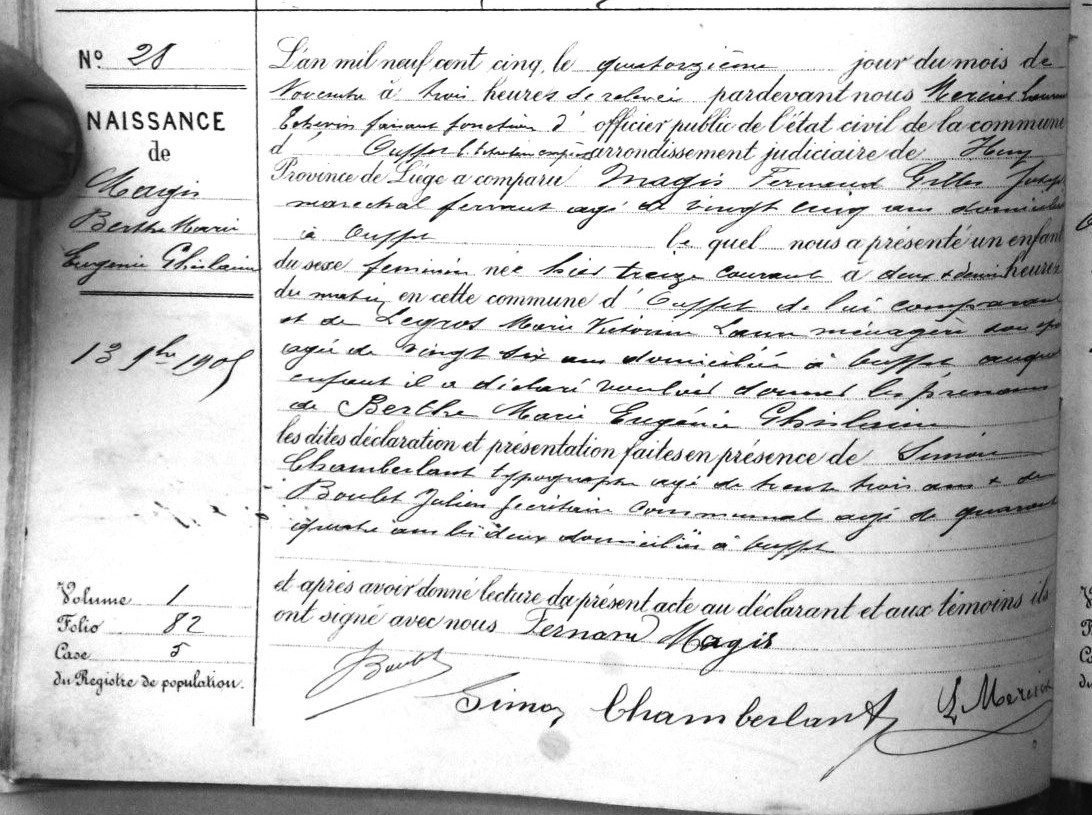 Nº 28
NAISSANCE
de
Magis
Berthe Marie
Eugenie Ghislaine
13 9bre 1905
L'an mil neuf cent cinq, le quatorzième jour du mois de
Novembre à trois heures de relevée pardevant nous Mercier
Echevin faisant fonction d' officier public de l'état civil de la commune
d' Ouffet arrondissement judiciaire de Huy
Province de Liége a comparu Magis Fernand Gilles Joseph
marechal ferrant agé de vingt cinq ans domicilié
à Ouffet le quel nous a présenté un enfant
du sexe feminin née hier treize courant à deux & demi heures
du matin en cette commune d' Ouffet de lui comparant
et de Legros Marie Victorine Laure ménagère son
agée de vingt six ans domiciliée à Ouffet auquel
enfant il a déclaré vouloir donner les prénoms
de Berthe Marie Eugénie Ghislaine
les dites déclaration et présentation faites en présence de Simon
Chamberlant typographe agé de trente trois ans & de
Boulet Julien Secrétaire communal agé de quarante
quatre ans les deux domiciliés à Ouffet
et après avoir donné lecture du présent acte au déclarant et aux témoins ils
ont signé avec nous Fernand Magis
Boulet
Simon Chamberlant
L. Mercier
Volume 1
Folio 82
Case 5
du Registre de population.